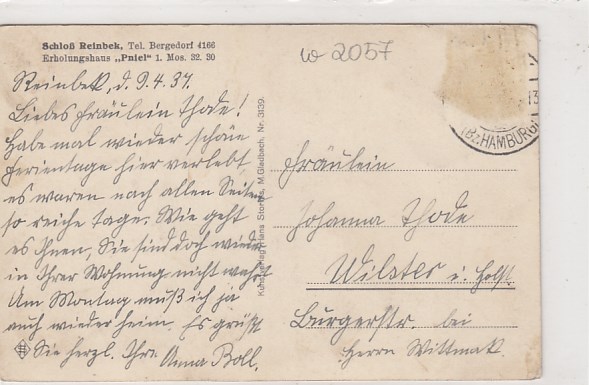 Schloß Reinbek, Tel. Bergedorf 4166
Erholungshaus „Pniel" 1. Mos. 32. 30
w 2057
Reinbek, d. 9.4.37.
Liebes Fräulein Thode!
Habe mal wieder schöne
Ferientage hier verlebt
es waren nach allen Seiten
so reiche Tage. Wie geht
es Ihnen, Sie sind doch wieder
in Ihrer Wohnung nicht wahr?
Am Montag muß ich ja
auch wieder heim. Es grüßt
Sie herzl. Ihre Anna Boll.
Kunstverlag Hans Storms, M.Gladbach. Nr. 3139.
(Bz. HAMBURG)
Fräulein
Johanna Thode
Wilster i. Holst.
Burgerstr. bei
Herrn Wittmak